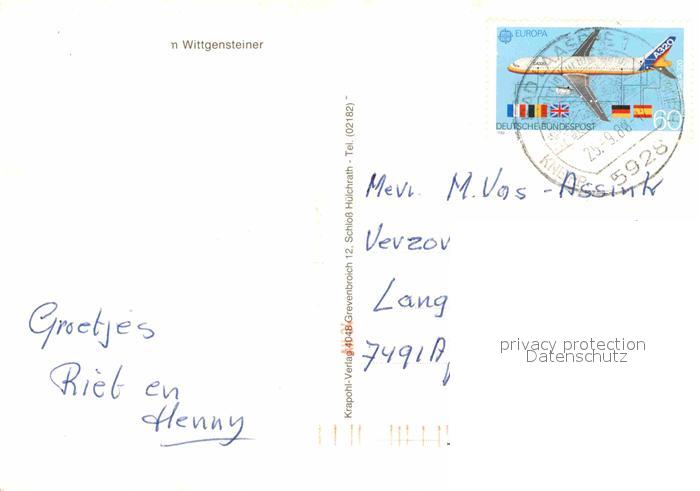 n Wittgensteiner
EUROPA
A320
DEUTSCHE BUNDESPOST
60
25.-9.88
5928
Krapohl-Verlag 4048 Grevenbroich 12, Schloß Hülchrath - Tel. (02182)
Mevr. M. Vos - Assink
Verzov
Lang
7491A
Groetjes
Riet en
Henny
privacy protection
Datenschutz